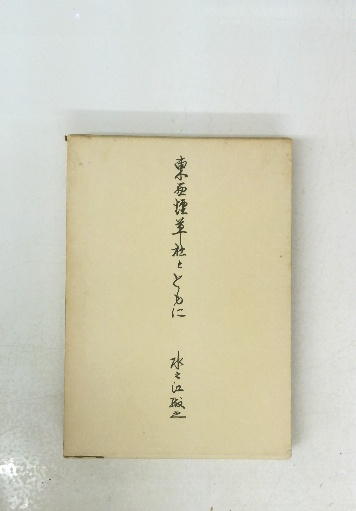 東亜煙草社とともに 水之江殿之